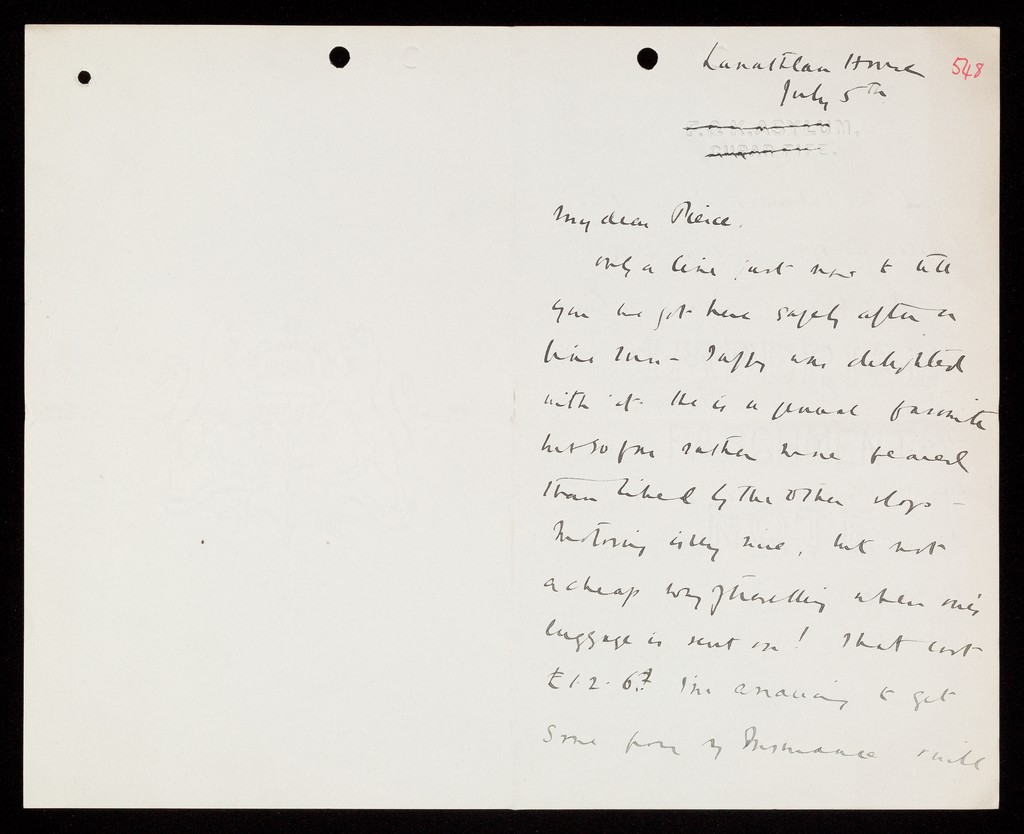 548
House
July 5th
F. & K. ASYLUM,
CUPAR FIFE.
My dear Pierce.
Only a line just now to tell
you we got here safely after a
fine run - was delighted
with it. He is a general favourite
but so far rather more feared
than liked by the other dogs -
Motoring is very nice, but not
a cheap way of travelling when one's
luggage is sent on! That cost
£1. 2. 6. I'm to get
some form of Insurance